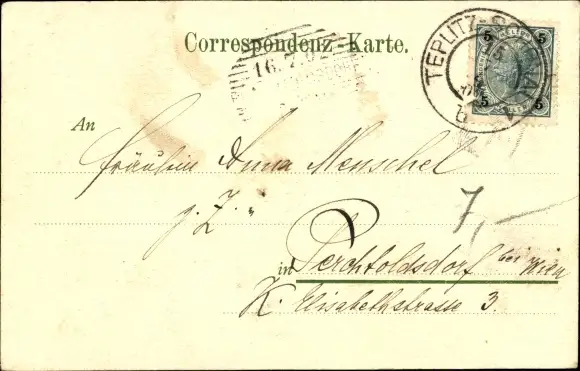 Correspondenz-Karte.
16.7.0
TEPLITZ-
5 5
5 5
An
Fräulein Anna Menschel
z. Z. "
7,-
in Perchtoldsdorf bei Wien
K. Elisabethstrasse 3.